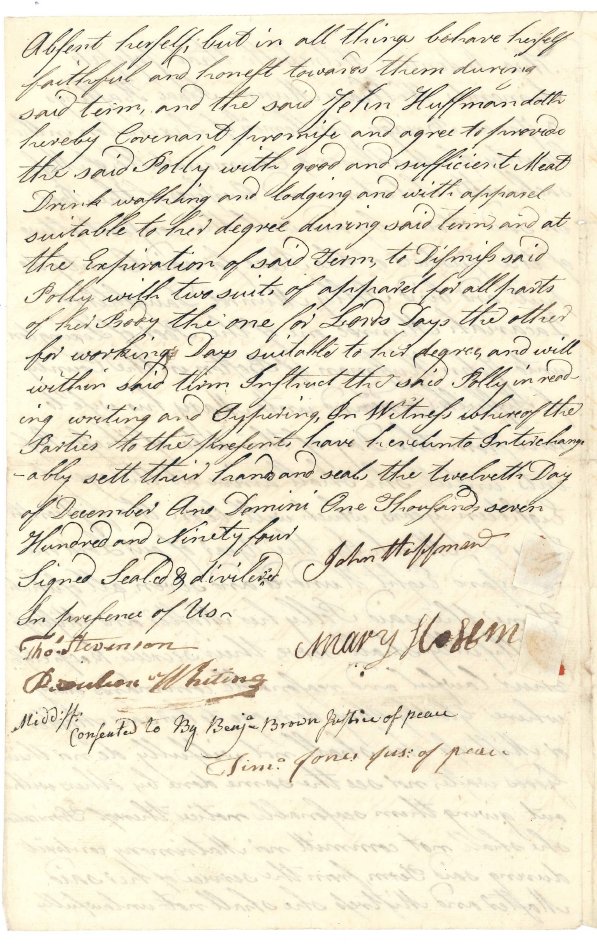 Absent herself, but in all things behave herself
faithful and honest towards them during
said term, and the said John Huffman doth
hereby Covenant promise and agree to provide
the said Polly with good and sufficient Meat
Drink washing and lodging and with apparel
suitable to her degree during said term, and at
the Expiration of said Term, to Dismiss said
Polly with two suits of apparel for all parts
of her Body the one for Lords Days the other
for working Days suitable to her degree, and will
within said term Instruct the said Polly in read-
ing writing and Cypering, In Witness whereof the
Parties to the presents have hereunto Interchang
-ably sett their hand and seals the twelveth Day
of December Ano Domini One Thousand seven
Hundred and Ninety four
Signed Sealed & divilered
John Hoffman
In presence of Us
Thos. Stevenson
Mary
Reuben Whiting
Middss.
Consented to By Benja Brown Justice of peace
Timo. Jones Jus: of peace